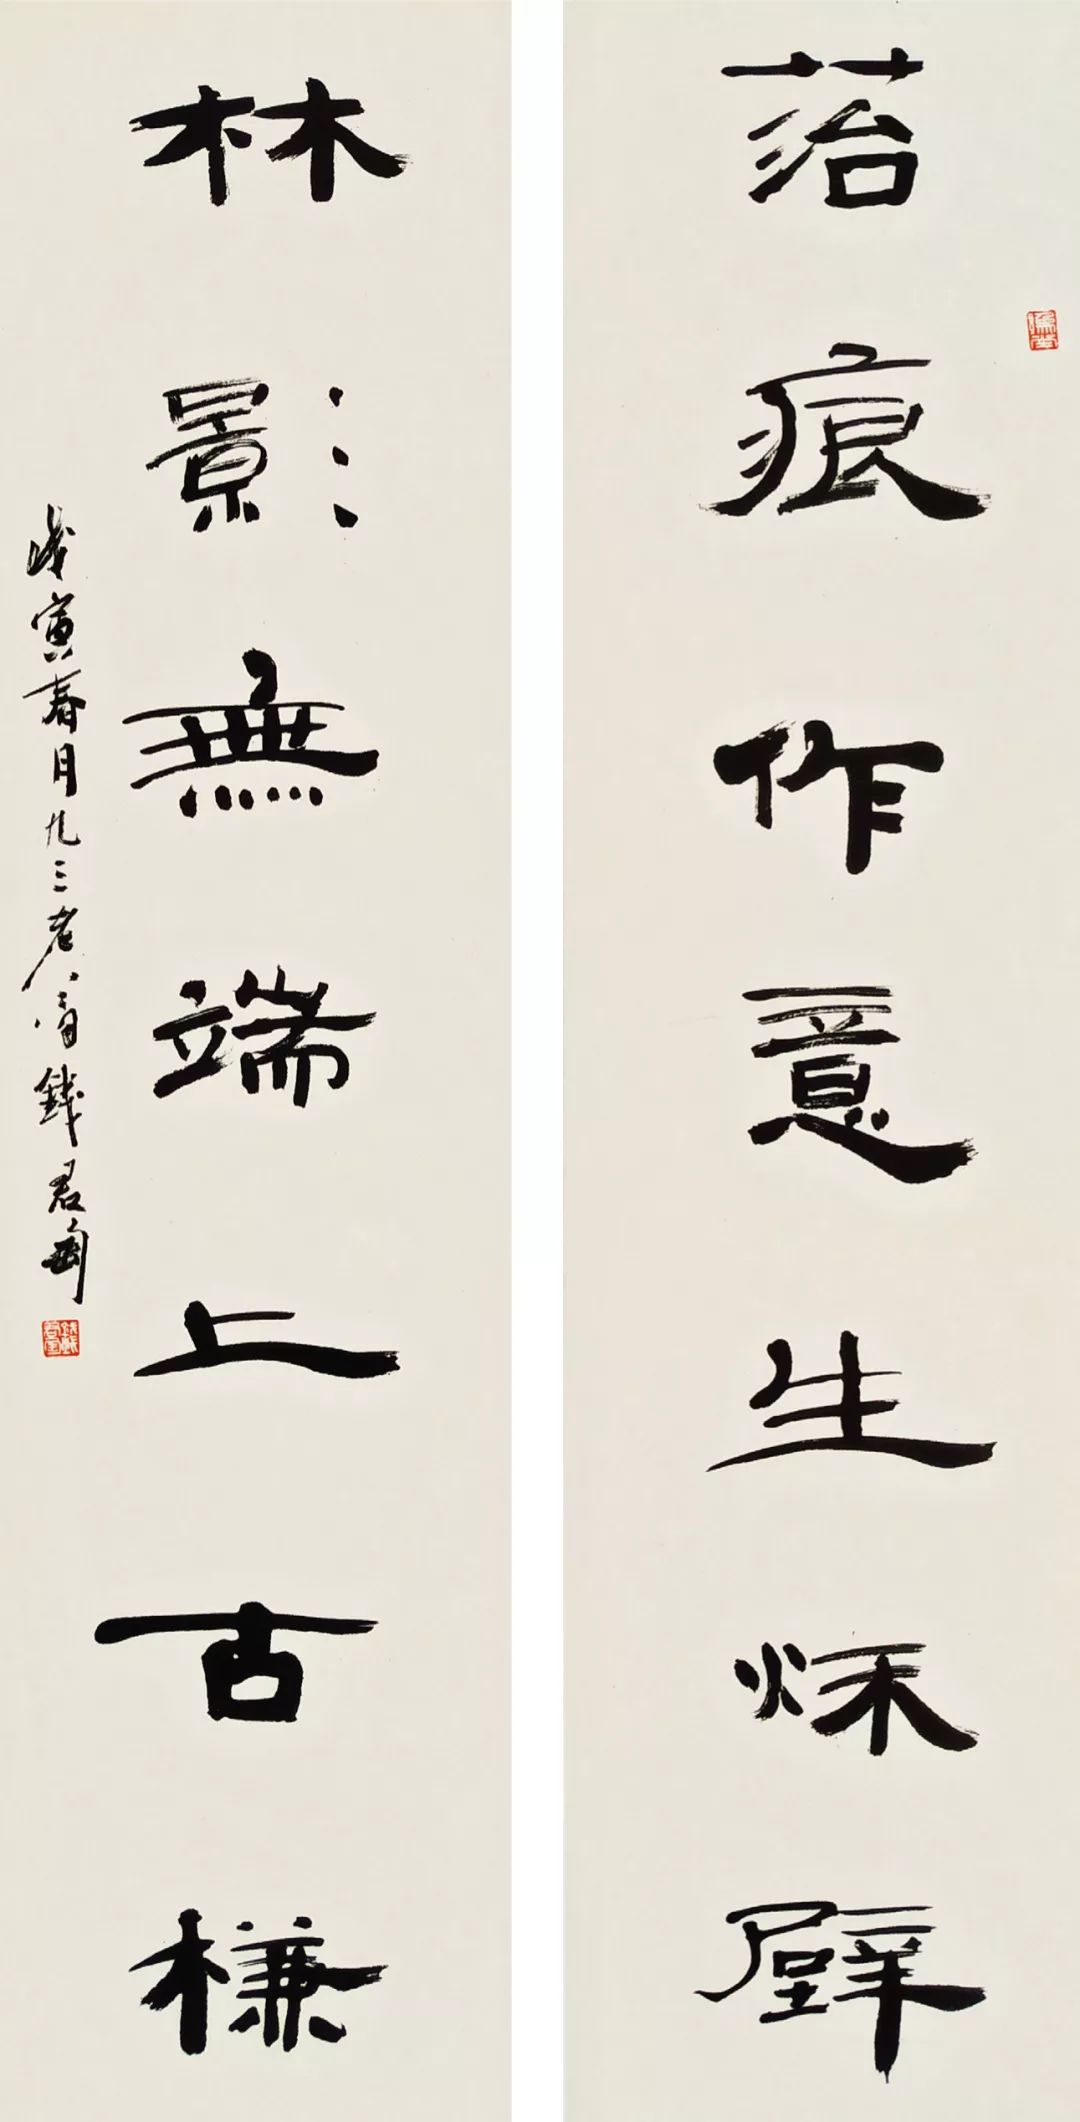 菭痕作意生秌壁
林影無端上古槏
戊寅春月九三老錢君匋